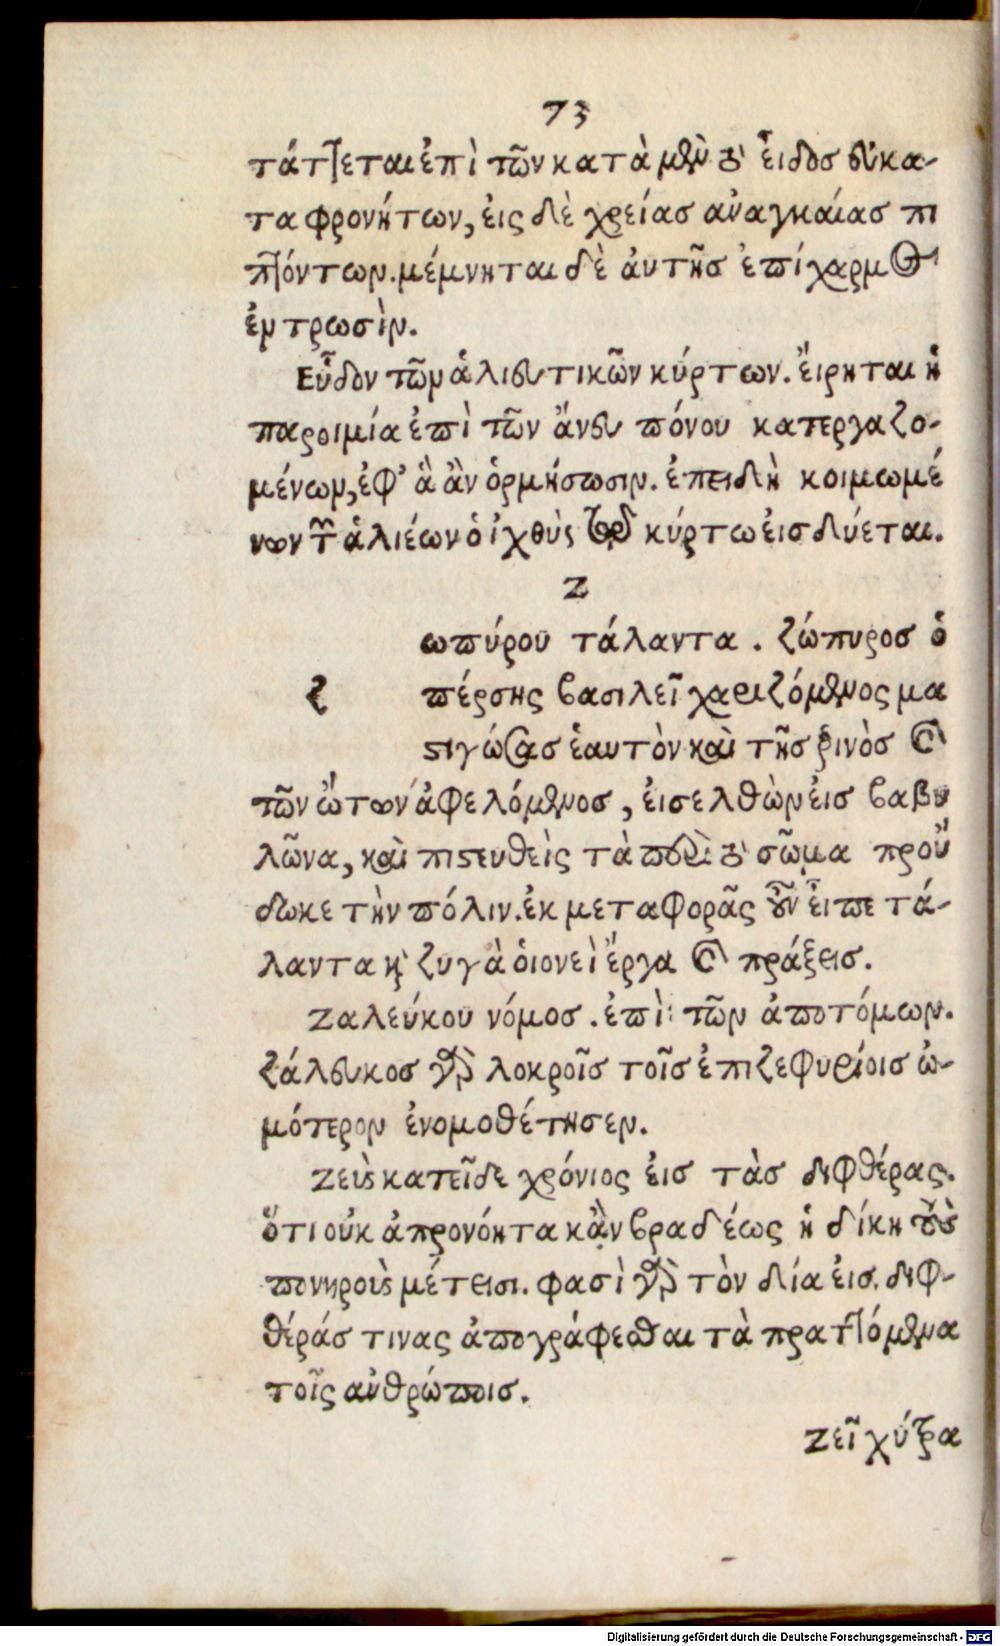 73
τάττεται ἐπὶ τῶν κατὰ μὲν τὸ εἶδος εὐκα-
ταφρονήτων, εἰς δὲ χρείας ἀναγκαίας πι
πτόντων. μέμνηται δὲ αὐτῆς ἐπίχαρμος
ἐν τρωσὶν.
Εὗδον τῶν ἁλιευτικῶν κύρτων. εἴρηται ἡ
παροιμία ἐπὶ τῶν ἄνευ πόνου κατεργαζο-
μένων, ἐφ' ἃ ἂν ὁρμήσωσιν. ἐπειδὴ κοιμωμέ
νων τῶν ἁλιέων ὁ ἰχθὺς τῷ κύρτω εἰσδύεται.
Ζ
ωπύρου τάλαντα. ζώπυρος ὁ
ζ πέρσης βασιλεῖ χαριζόμενος μα
στιγώσας ἑαυτὸν καὶ τῆς ῥινὸς καὶ
τῶν ὤτων ἀφελόμενος, εἰσελθὼν εἰς βαβυ
λῶνα, καὶ πιστευθεὶς τὰ περὶ τὸ σῶμα προὔ
δωκε τὴν πόλιν. ἐκ μεταφορᾶς οὖν εἶπε τά-
λαντα καὶ ζυγὰ οἱονεὶ ἔργα καὶ πράξεις.
Ζαλεύκου νόμος. ἐπὶ τῶν ἀποτόμων.
ζάλευκος γὰρ λοκροῖς τοῖς ἐπιζεφυρίοις ὠ-
μότερον ἐνομοθέτησεν.
Ζεὺς κατεῖδε χρόνιος εἰς τὰς διφθέρας.
ὅτι οὐκ ἀπρονόητα κἂν βραδέως ἡ δίκη τοὺς
πονηροὺς μέτεισι. φασὶ γὰρ τὸν δία εἰς. διφ-
θέρας τινας ἀπογράφεσθαι τὰ πραττόμενα
τοῖς ἀνθρώποις.
Ζεῖ χύτρα
Digitalisierung gefördert durch die Deutsche Forschungsgemeinschaft - DFG